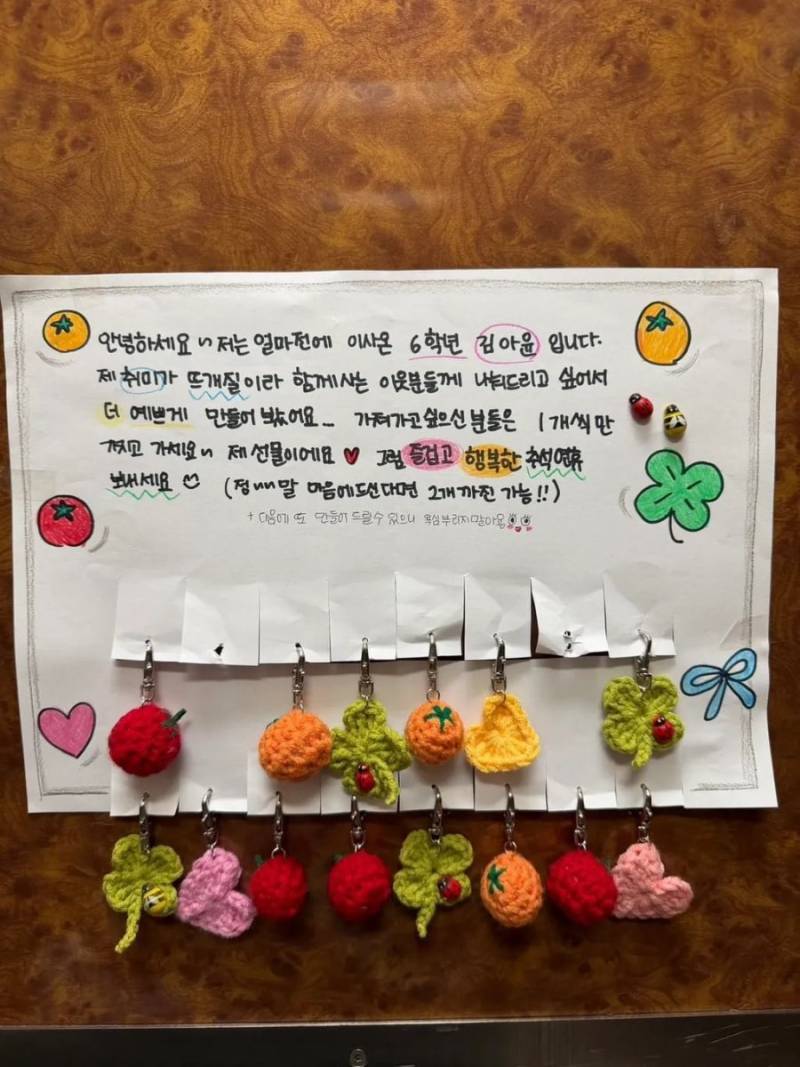 안녕하세요~ 저는 얼마전에 이사온 6학년 김아윤 입니다.
제 취미가 뜨개질이라 함께사는 이웃분들께 나눠드리고 싶어서
더 예쁘게 만들어 봤어요... 가져가고싶으신 분들은 1개씩만
가지고 가세요~ 제 선물이에요 ♥ 그럼 즐겁고 행복한 추석연휴
보내세요 ☺ (정~~말 마음에드신다면 2개까진 가능!!)
+ 다음에 또 만들어 드릴수 있으니 욕심부리지말아용